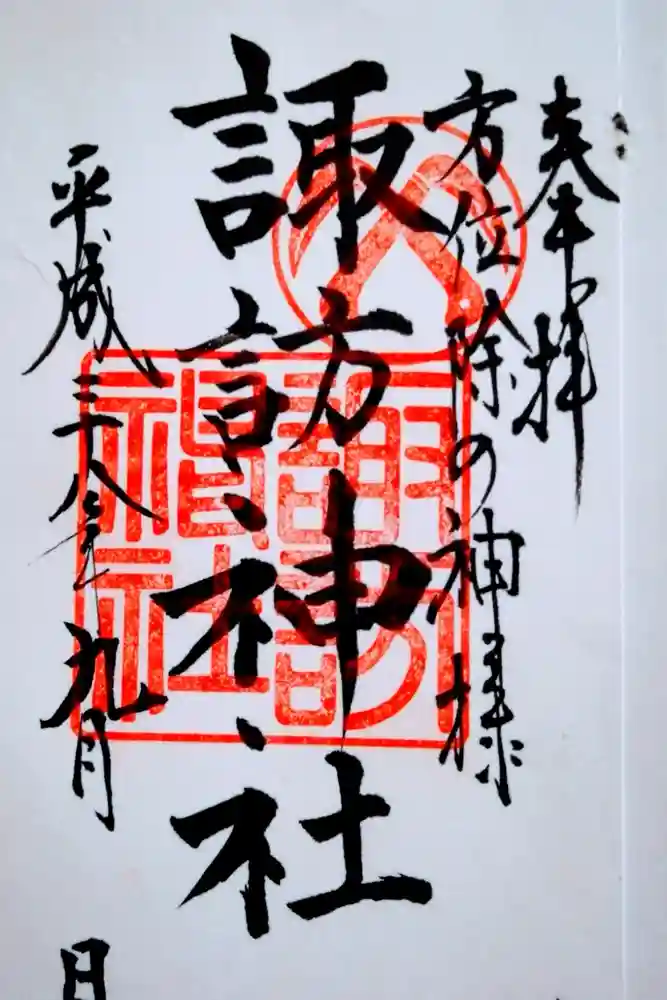 奉拝
方位除の神様
諏訪神社
平成二十八年九月 日
諏訪
神社